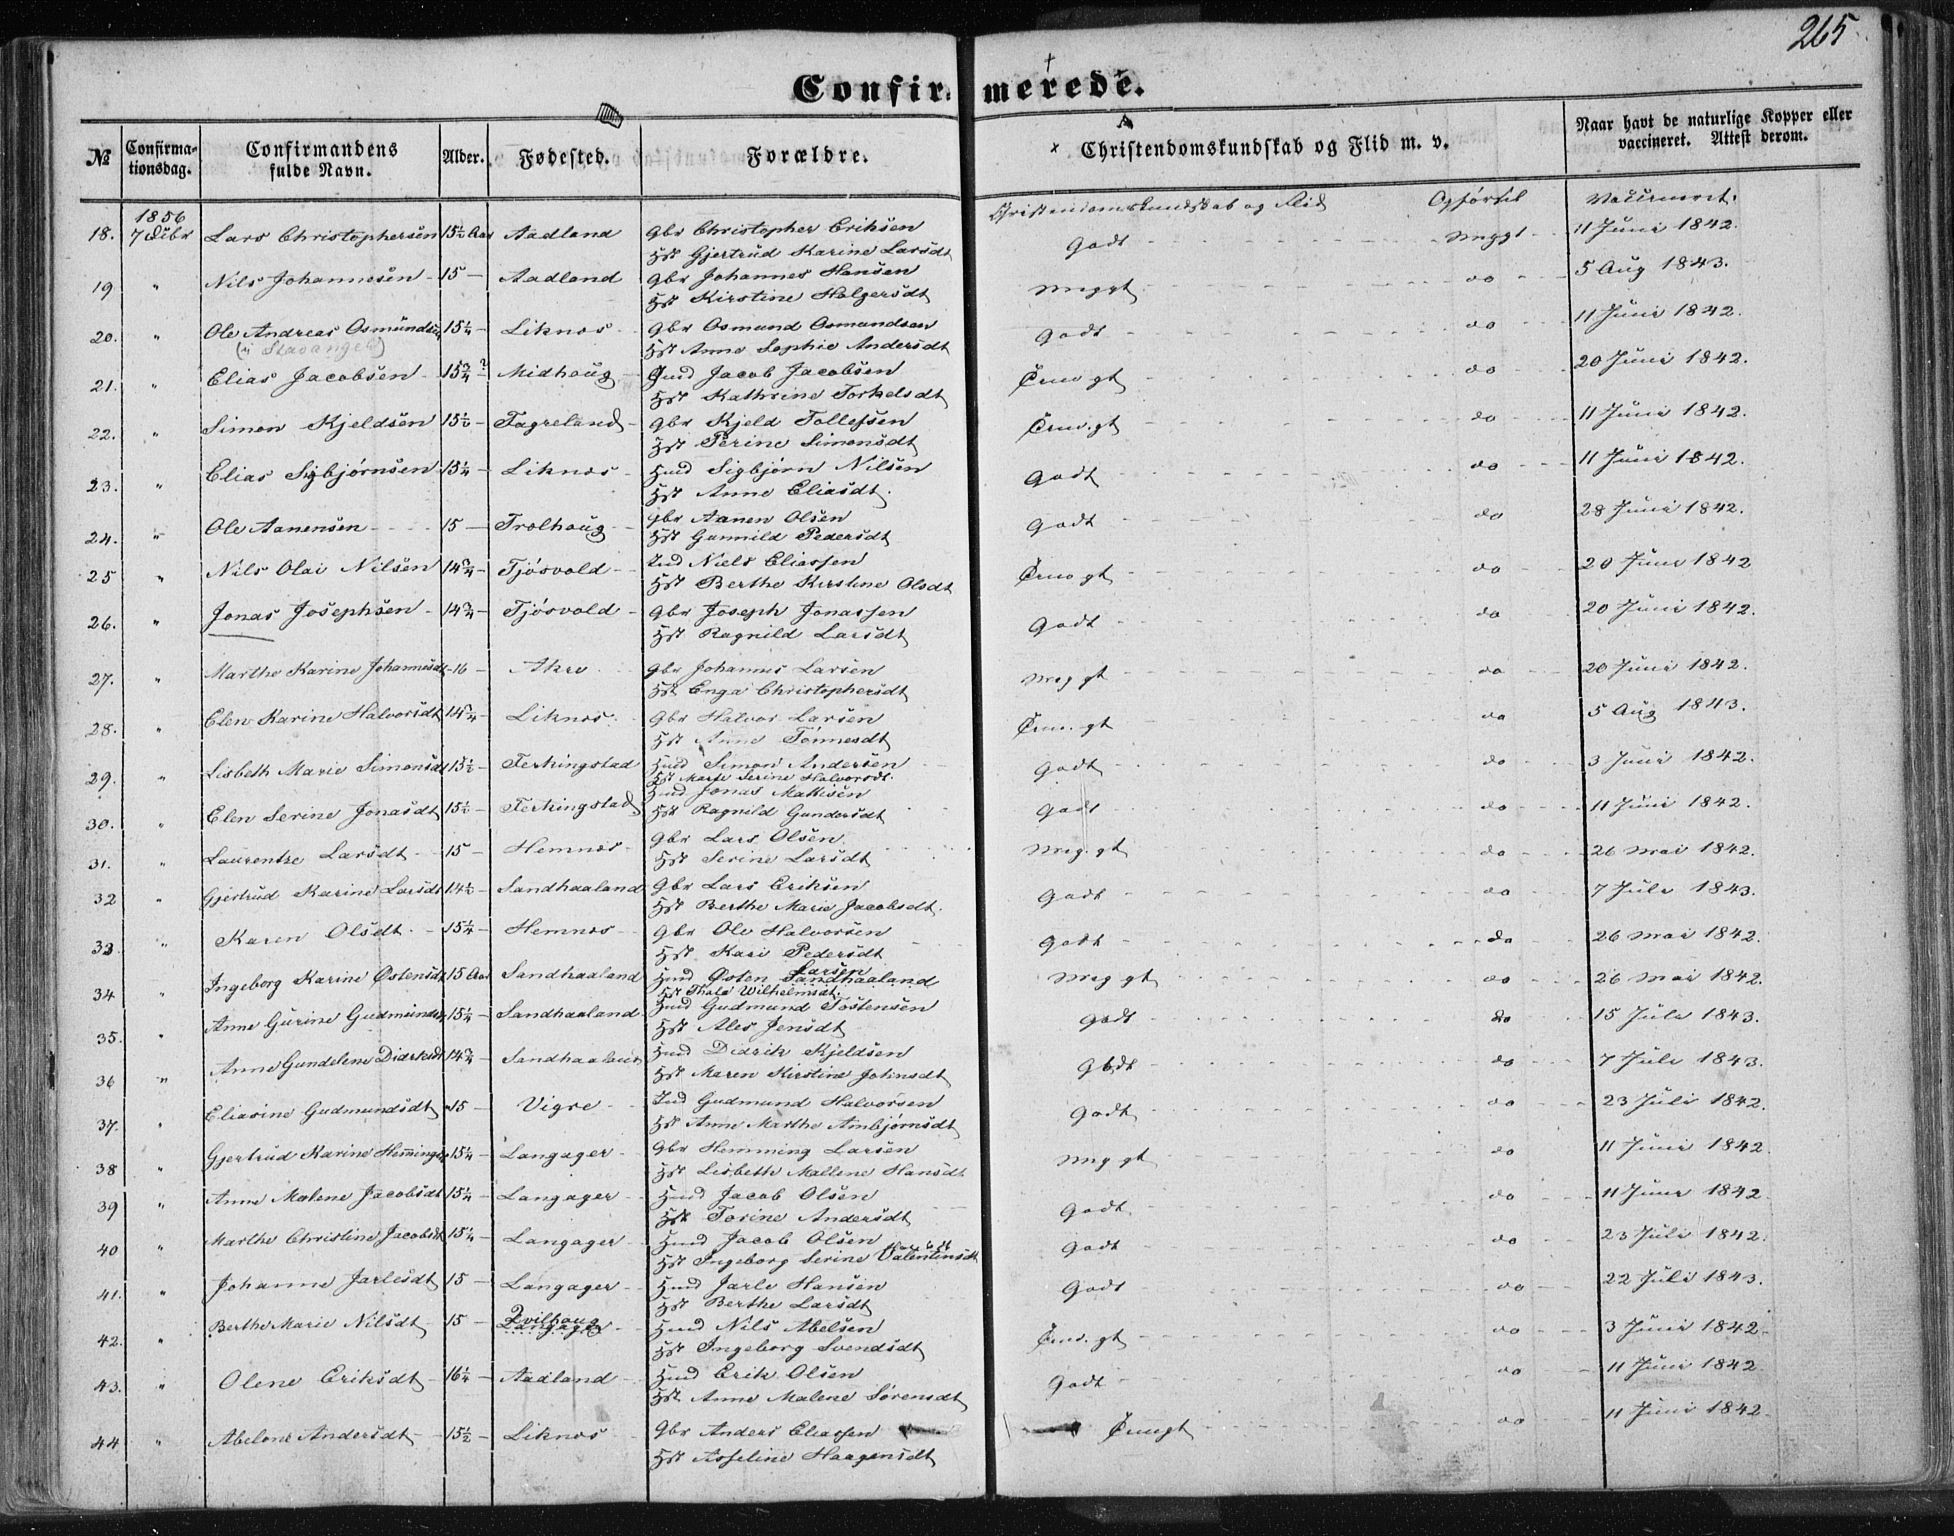 265
Confirmerede.
№
Confirmationsdag.
Confirmandens fulde Navn.
Alder.
Fødested.
Forældre.
Christendomskundskab og Flid m. v.
Naar havt de naturlige Kopper eller vaccineret. Attest derom.
1856 Christendomskundskab og Flid Opførsel Vaccineret.
18. 7 Lars Christophersen 15½ Aar Aadland Gbr Christopher Eriksen Godt Meggt 11 Juni 1842.
Hst Gjertrud Karine Larsdt
19 " Nils Johannesen 15 Aadland Gbr Johannes Hansen Meggt do 5 Aug 1843.
Hst Kirstine Holgersdt
20. " Ole Andreas Osmundsen 15¼ Liknes Gbr Osmund Osmundsen Godt do 11 Juni 1842.
(i Stavanger) Hst Anne Sophie Andersdt
21. " Elias Jacobsen 15¾ Midhoug Jacob Jacobsen do 20 Juni 1842.
Hst Kathrine Torkelsdt
22. " Simon Kjeldsen 15½ Fagreland Gbr Kjeld Tollefsen do 11 Juni 1842.
Hst Serine Simonsdt
23. " Elias Sigbjørnsen 15¼ Liknes Hmd Sigbjørn Nilsen Godt do 11 Juni 1842.
Hst Anne Eliasdt.
24. " Ole Aanensen 15 Trolhoug Gbr Aanen Olsen Godt do 28 Juni 1842.
Hst Gunnild Pedersdt
25 " Nils Olai Nilsen 14¾ Tjösvold Niels Eliassen do 20 Juni 1842
Hst Berthe Kirstine Olsdt
26. " Jonas Josephsen 14¾ Tjösvold Gbr Joseph Jonassen Godt do 20 Juni 1842.
Hst Ragnild Larsdt
27. " Marthe Karine Johannesdt 16 Akre Gbr Johannes Larsen Meg gt do 20 Juni 1842.
Hst Enga Christophersdt
28. " Elen Karine Halvorsdt 14¾ Liknes. Gbr Halvor Larsen do 5 Aug 1843.
Hst Anne Tönnesdt
29. " Lisbeth Marie Simonsdt 15½ Ferkingstad Hmd Simon Andersen Godt do 3 Juni 1842.
Hst Marte Serine Halvorsdt.
30. " Elen Serine Jonasdt 15½ Ferkingstad Hmd Jonas Matisen Godt do 11 Juni 1842.
Hst Ragnild Gundersdt
31. " Laurentze Larsdt 15 Hemnes Gbr Lars Olsen Meg. gt do 26 Mai 1842.
Hst Serine Larsdt
32 " Gjertrud Karine Larsdt 14½ Sandhaaland Gbr Lars Eriksen Godt do 7 Juli 1843.
Hst Berthe Marie Jacobsdt.
33. " Karen Olsdt. 15¼ Hemnes Gbr Ole Halvorsen Godt do 26 Mai 1842.
Hst Kari Pedersdt
34 " Ingeborg Karine Østensdt 15 Aar Sandhaaland Hmd Østen Larsen Sandhaaland Meg gt do 26 Mai 1842.
Hst Thala Wilhelmsdt.
35. " Anne Gurine Gudmundsdt 15¼ Sandhaaland Hmd Gudmund Tostensen Godt do 15 Juli 1843.
Hst Ales Jensdt
36 " Anne Gundelene Didriksdt 14¾ Sandhaaland Hmd Didrik Kjeldsen Godt do 7 Juli 1843.
Hst Maren Kirstine Johnsdt
37. " Eliasine Gudmundsdt 15 Vigre Gudmund Halvorsen Godt do 23 Juli 1842.
Hst Anne Marthe Anbjørnsdt
38 " Gjertrud Karine Hemingsdt 15¼ Langager Gbr Hemming Larsen Meg gt do 11 Juni 1842
Hst Lisbeth Mallene Hansdt
39 " Anne Malene Jacobsdt 15¼ Langager Hmd Jacob Olsen Godt do 11 Juni 1842
Hst Torine Andersdt
40 " Marthe Christine Jacobsdt 15¼ Langager Hmd Jacob Olsen Godt do 23 Juli 1842.
Hst Ingeborg Serine Valentinsdt
41. " Johanne Jarlesdt 15 Langager Hmd Jarle Hansen Godt do 22 Juli 1843.
Hst Berthe Larsdt
42. " Berthe Marie Nilsdt 15 Langager Hmd Nils Abelsen do 3 Juni 1842
Hst Ingeborg Svendsdt
43. " Olene Eriksdt 16¼ Aadland Hmd Erik Olsen Godt do 11 Juni 1842
Hst Anne Malene Sörensdt
44 " Abelone Andersdt 15½ Liknes Gbr Anders Eliassen do 11 Juni 1842
Hst Asseline Haagensdt